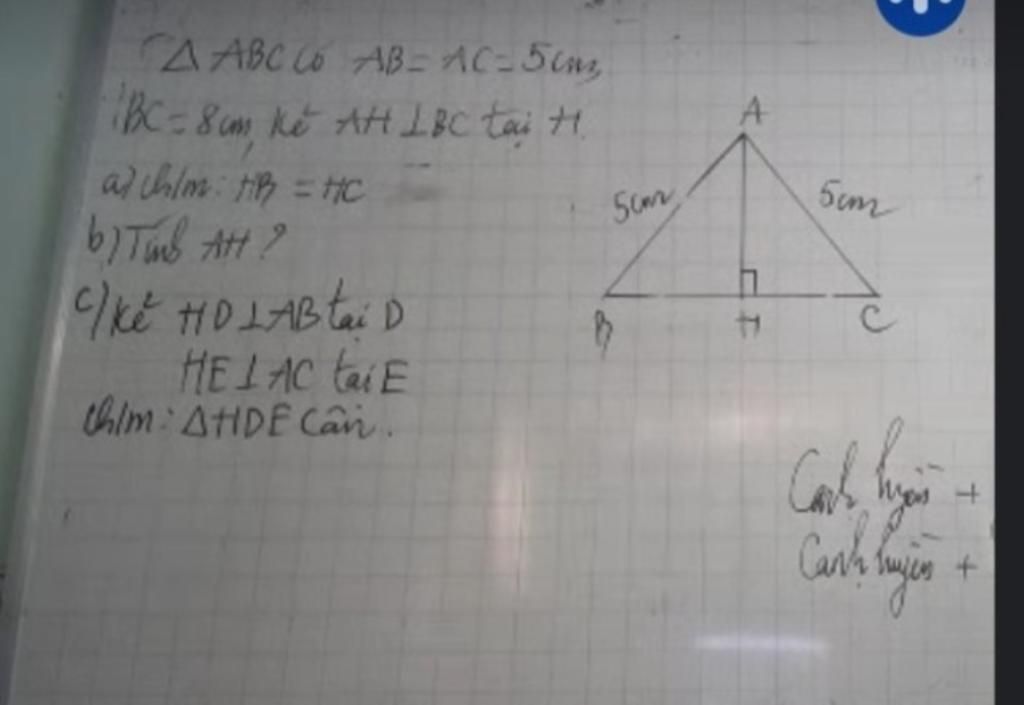 Δ ABC có AB = AC = 5cm,
BC = 8cm, kẻ AH ⊥ BC tại H.
a) ch/m: HB = HC
b) Tính AH?
c) kẻ HD ⊥ AB tại D
HE ⊥ AC tại E
ch/m: ΔHDE Cân.
A
5cm
5cm
B
H
C
Cạnh huyền +
Cạnh huyền +